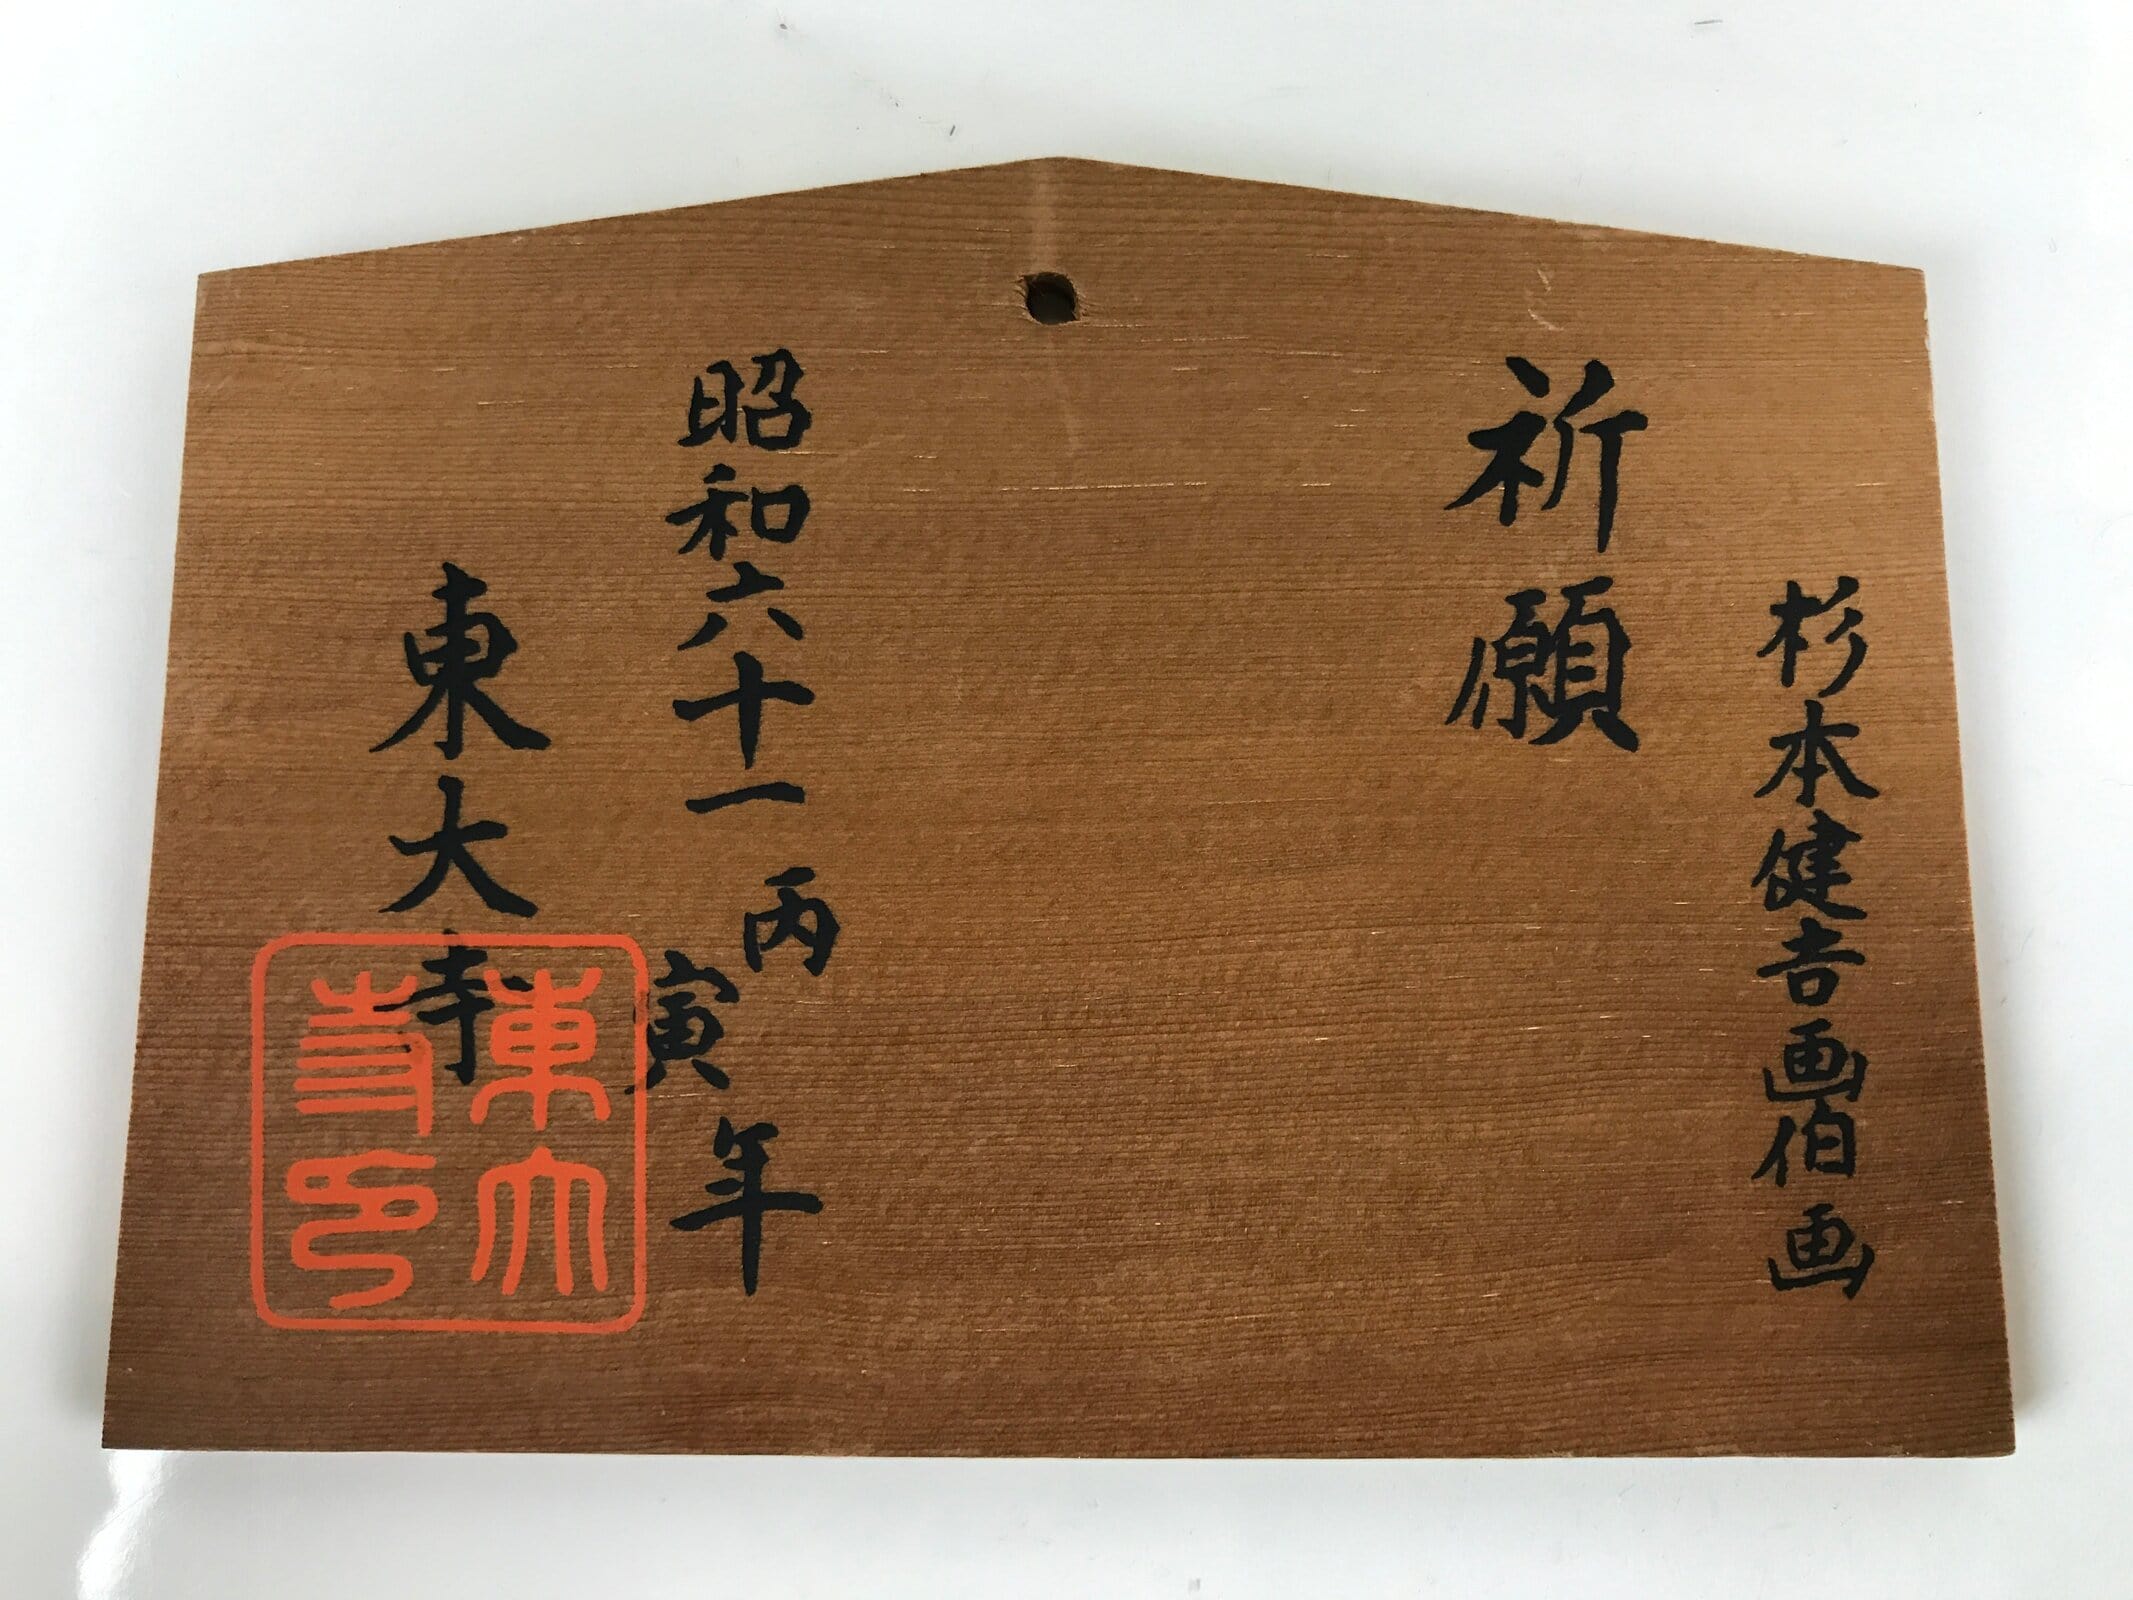 杉本健吉画伯画
祈願
昭和六十一丙寅年
東大寺
東大寺印